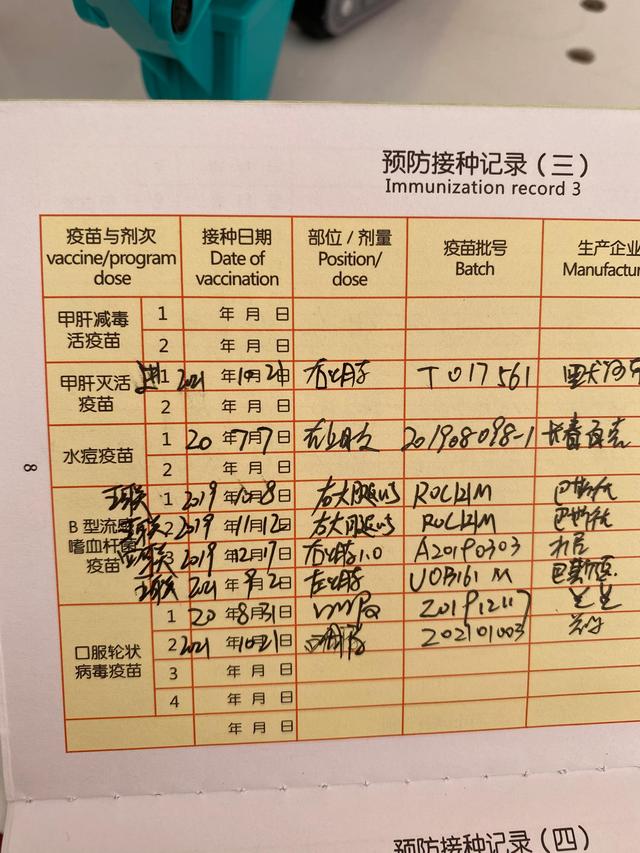 预防接种记录（三）
Immunization record 3
疫苗与剂次 接种日期 部位/剂量 疫苗批号 生产企业
vaccine/program Date of Position/ Batch Manufactur
dose vaccination dose
甲肝减毒活疫苗 1 年 月 日
2 年 月 日
甲肝灭活疫苗 进 1 2021 年 10 月 21 日 右上臂 T017561
2 年 月 日
水痘疫苗 1 20 年 7 月 7 日 201908098-1 长春百克
2 年 月 日
B型流感嗜血杆菌疫苗 五联 1 2019 年 10 月 8 日 右大腿 R0C121M 巴斯德
五联 2 2019 年 11 月 12 日 右大腿 R0C121M 巴斯德
五联 3 2019 年 12 月 17 日 右上臂 1.0 A20190303
五联 2021 年 9 月 2 日 左上臂 U0B161M 巴斯德
口服轮状病毒疫苗 1 20 年 8 月 31 日 20191217 兰生
2 2021 年 10 月 21 日 202101003
3 年 月 日
4 年 月 日
年 月 日
8
预防接种记录（四）